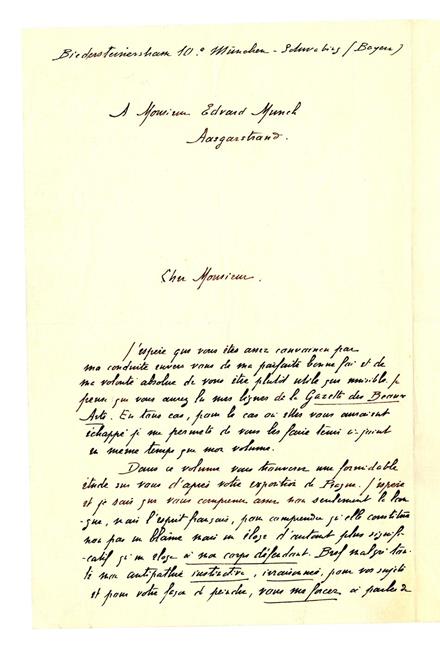 Biedersteinerstram 10.º München - Schwabing (Bayern)
A Monsieur Edvard Munch
Aasgarstrand.
Cher Monsieur.
J'espère que vous êtes assez convaincu par
ma conduite envers vous de ma parfaite bonne foi et de
ma volonté absolue de vous être plutôt utile que nuisible. Je
pense que vous aurez lu mes lignes de la Gazette des Beaux
Arts. En tous cas, pour le cas où elles vous auraient
échappé je me permets de vous les faire tenir ci-joint
en même temps que mon volume.
Dans ce volume vous trouverez une formidable
étude sur vous d'après votre exposition de Prague. J'espère
et je sais que vous comprenez assez non seulement la lan-
-gue, mais l'esprit français, pour comprendre qu'elle constitue
non pas un blâme mais un éloge d'autant plus signifi-
-catif qu'un éloge à mon corps défendant. Bref malgré tou-
te mon antipathie instinctive, irraisonnée, pour vos sujets
et pour votre façon de peindre, vous me forcez à parler de